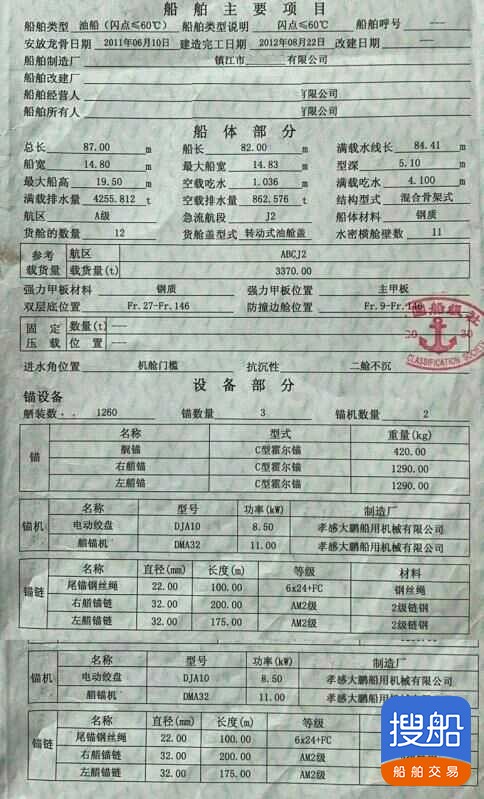 船 舶 主 要 项 目
船舶类型 油船（闪点≤60℃） 船舶类型说明 闪点≤60℃ 船舶呼号 ---
安放龙骨日期 2011年06月10日 建造完工日期 2012年08月22日 改建日期 ---
船舶制造厂 镇江市 有限公司
船舶改建厂 ---
船舶经营人 有限公司
船舶所有人 有限公司
船 体 部 分
总长 87.00 m 船长 82.00 m 满载水线长 84.41 m
船宽 14.80 m 最大船宽 14.83 m 型深 5.10 m
最大船高 19.50 m 空载吃水 1.036 m 满载吃水 4.100 m
满载排水量 4255.812 t 空载排水量 862.576 t 结构型式 混合骨架式
航区 A级 急流航段 J2 船体材料 钢质
货舱的数量 12 货舱盖型式 转动式油舱盖 水密横舱壁数 11
参考载货量 航区 ABCJ2
载货量(t) 3370.00
强力甲板材料 钢质 强力甲板位置 主甲板
双层底位置 Fr.27-Fr.146 防撞边舱位置 Fr.9-Fr.146
固定压载 数量(t) ---
位置 ---
进水角位置 机舱门槛 抗沉性 二舱不沉
设 备 部 分
锚设备
舾装数 1260 锚数量 3 锚机数量 2
锚 名称 型式 重量(kg)
艉锚 C型霍尔锚 420.00
右艏锚 C型霍尔锚 1290.00
左艏锚 C型霍尔锚 1290.00
锚机 名称 型号 功率(kW) 制造厂
电动绞盘 DJA10 8.50 孝感大鹏船用机械有限公司
艏锚机 DMA32 11.00 孝感大鹏船用机械有限公司
锚链 名称 直径(mm) 长度(m) 等级 材料
尾锚钢丝绳 22.00 100.00 6x24+FC 钢丝绳
右艏锚链 32.00 200.00 AM2级 2级链钢
左艏锚链 32.00 175.00 AM2级 2级链钢
锚机 名称 型号 功率(kW) 制造厂
电动绞盘 DJA10 8.50 孝感大鹏船用机械有限公司
艏锚机 DMA32 11.00 孝感大鹏船用机械有限公司
锚链 名称 直径(mm) 长度(m) 等级
尾锚钢丝绳 22.00 100.00 6x24+FC
右艏锚链 32.00 200.00 AM2级
左艏锚链 32.00 175.00 AM2级
船级社
30
CLASSIFICATION
搜船
船舶交易